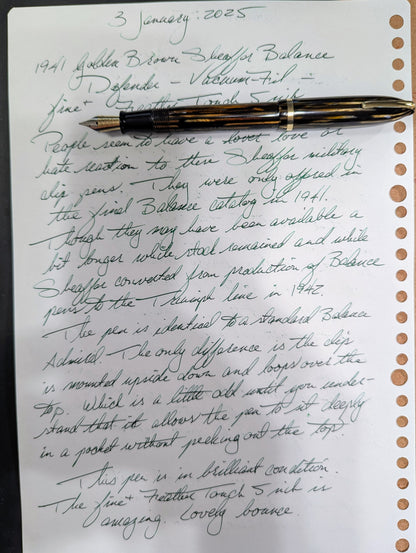 3 January 2025
1941 Golden Brown Sheaffer Balance
Defender – Vacuum-Fil –
fine+ Feather Touch 5 nib
People seem to have a lover love or
hate reaction to these Sheaffer military
clip pens. They were only offered in
the final Balance catalog in 1941.
Though they may have been available a
bit longer while stock remained and while
Sheaffer converted from production of Balance
pens to the Triumph line in 1942.
The pen is identical to a standard Balance
Admiral – The only difference is the clip
is mounted upside down and loops over the
top. Which is a little odd until you under-
stand that it allows the pen to sit deeply
in a pocket without peeking out the top.
This pen is in brilliant condition.
The fine+ Feather Touch 5 nib is
amazing. Lovely bounce.